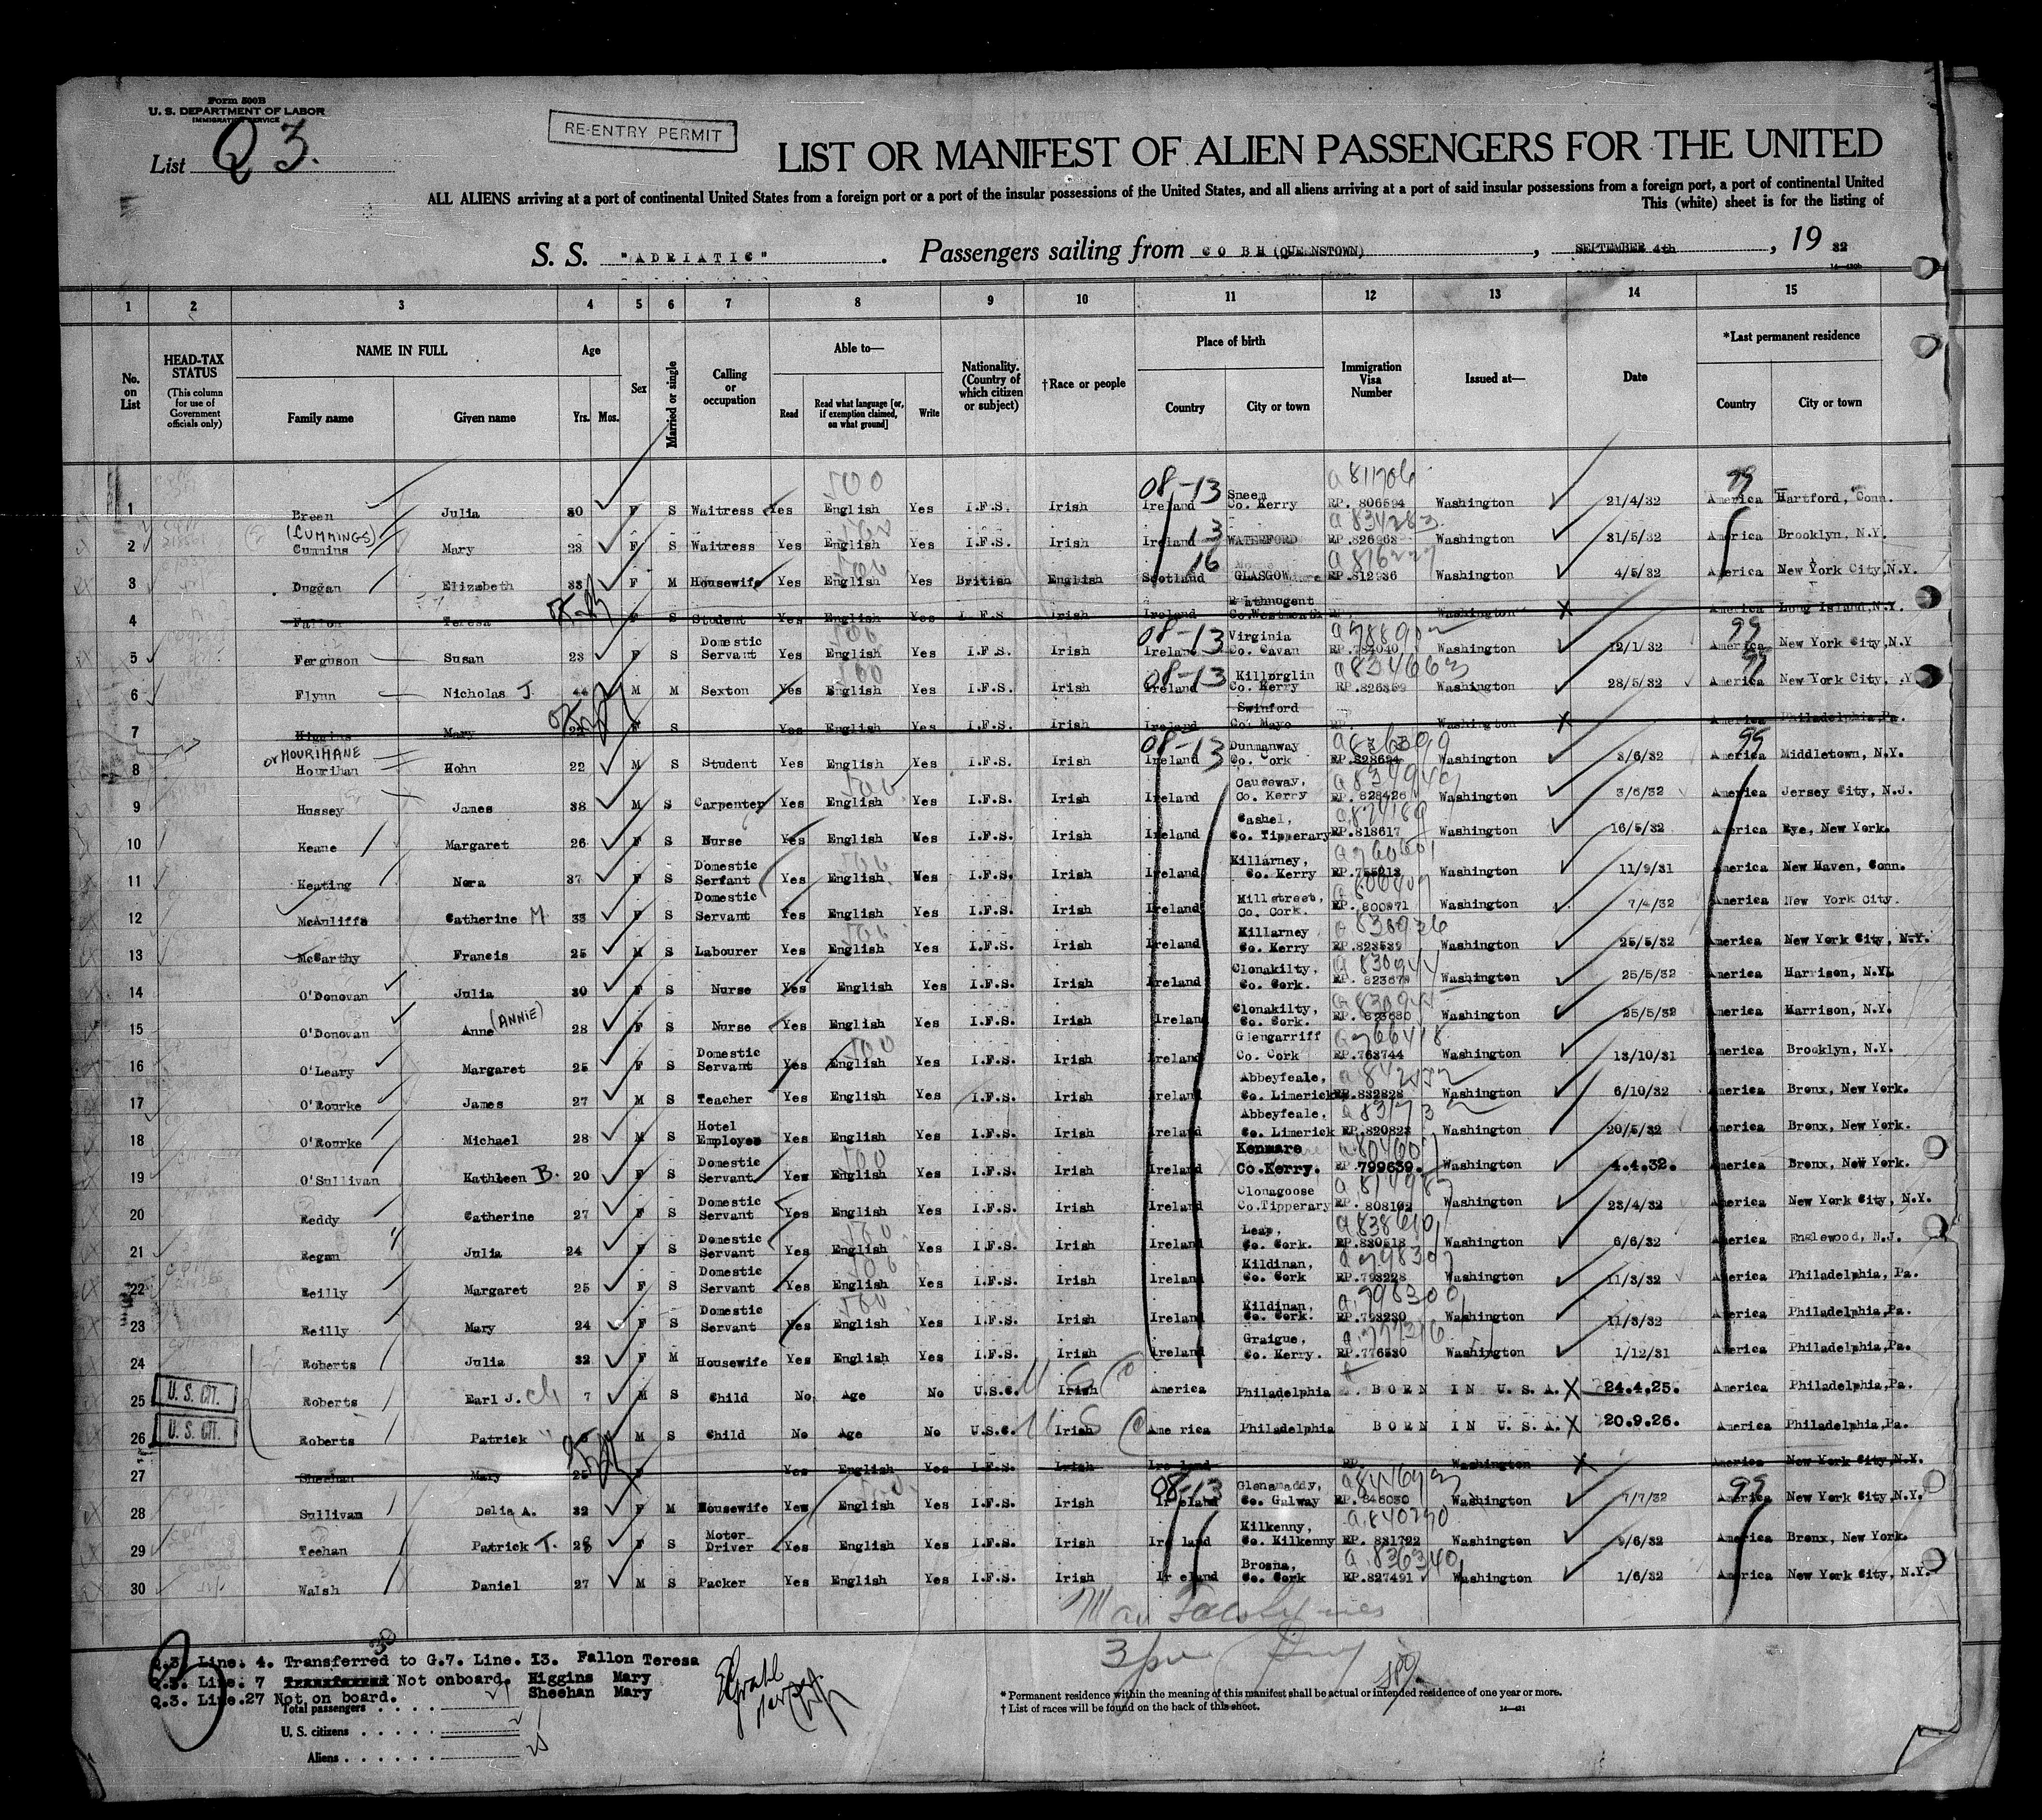 Form 500B
U. S. DEPARTMENT OF LABOR
IMMIGRATION SERVICE
List Q 3.
RE-ENTRY PERMIT
LIST OR MANIFEST OF ALIEN PASSENGERS FOR THE UNITED
ALL ALIENS arriving at a port of continental United States from a foreign port or a port of the insular possessions of the United States, and all aliens arriving at a port of said insular possessions from a foreign port, a port of continental United
This (white) sheet is for the listing of
S. S. "ADRIATIC" . Passengers sailing from COBH (QUEENSTOWN) , SEPTEMBER 4th , 19 32
1 2 3 4 5 6 7 8 9 10 11 12 13 14 15
No. on List
HEAD-TAX STATUS (This column for use of Government officials only)
NAME IN FULL Family name Given name
Age Yrs. Mos.
Sex
Married or single
Calling or occupation
Able to— Read Read what language [or, if exemption claimed, on what ground] Write
Nationality. (Country of which citizen or subject)
†Race or people
Place of birth Country City or town
Immigration Visa Number
Issued at—
Date
*Last permanent residence Country City or town
1 Breen Julia 30 F S Waitress Yes English Yes I.F.S. Irish Ireland Sneem Co. Kerry RP. 806594 Washington 21/4/32 America Hartford, Conn.
2 (CUMMINGS) Cummins Mary 23 F S Waitress Yes English Yes I.F.S. Irish Ireland WATERFORD RP. Washington 31/5/32 America Brooklyn, N.Y.
3 Duggan Elizabeth 33 F M Housewife Yes English Yes British English Scotland GLASGOW RP. Washington 4/5/32 America New York City, N.Y.
4 Fallon Teresa F S Student Yes English Yes I.F.S. Irish Ireland Rathnugent Co. Westmeath RP. Washington X America Long Island, N.Y.
5 Ferguson Susan 23 F S Domestic Servant Yes English Yes I.F.S. Irish Ireland Virginia Co. Cavan RP.784040 Washington 12/1/32 America New York City, N.Y
6 Flynn Nicholas J 44 M M Sexton Yes English Yes I.F.S. Irish Ireland Killorglin Co. Kerry RP.826359 Washington 28/5/32 America New York City, Y
7 Higgins Mary F S Yes English Yes I.F.S. Irish Ireland Swinford Co. Mayo RP. Washington X America Philadelphia, Pa.
8 or HOURIHANE Hourihan Hohn 22 M S Student Yes English Yes I.F.S. Irish Ireland Dunmanway Co. Cork RP.828694 Washington 3/6/32 America Middletown, N.Y.
9 Hussey James 38 M S Carpenter Yes English Yes I.F.S. Irish Ireland Causeway, Co. Kerry RP. 828426 Washington 3/6/32 America Jersey City, N.J.
10 Keane Margaret 26 F S Nurse Yes English Wes I.F.S. Irish Ireland Cashel, Co. Tipperary RP.818617 Washington 16/5/32 America Rye, New York.
11 Keating Nora 37 F S Domestic Serfant Yes English Wes I.F.S. Irish Ireland Killarney, Co. Kerry RP.755213 Washington 11/9/31 America New Haven, Conn.
12 McAuliffe Catherine M 33 F S Domestic Servant Yes English Yes I.F.S. Irish Ireland Millstreet, Co. Cork. RP. 800971 Washington 7/4/32 America New York City.
13 McCarthy Francis 25 M S Labourer Yes English Yes I.F.S. Irish Ireland Killarney Co. Kerry RP.823539 Washington 25/5/32 America New York City, N.Y.
14 O'Donovan Julia 30 F S Nurse Yes English Yes I.F.S. Irish Ireland Clonakilty, Co. Cork. RP. 823679 Washington 25/5/32 America Harrison, N.Y.
15 O'Donovan Anne (ANNIE) 28 F S Nurse Yes English Yes I.F.S. Irish Ireland Clonakilty, Co. Cork. RP. 823680 Washington 25/5/32 America Harrison, N.Y.
16 O'Leary Margaret 25 F S Domestic Servant Yes English Yes I.F.S. Irish Ireland Glengarriff Co. Cork RP.763744 Washington 13/10/31 America Brooklyn, N.Y.
17 O'Rourke James 27 M S Teacher Yes English Yes I.F.S. Irish Ireland Abbeyfeale, Co. Limerick RP.832828 Washington 6/10/32 America Bronx, New York.
18 O'Rourke Michael 28 M S Hotel Employee Yes English Yes I.F.S. Irish Ireland Abbeyfeale, Co. Limerick RP.820823 Washington 20/5/32 America Bronx, New York.
19 O'Sullivan Kathleen B. 20 F S Domestic Servant Yes English Yes I.F.S. Irish Ireland Kenmare Co.Kerry. RP.799639. Washington 4.4.32. America Bronx, New York.
20 Reddy Catherine 27 F S Domestic Servant Yes English Yes I.F.S. Irish Ireland Clonagoose Co.Tipperary RP. 808102 Washington 23/4/32 America New York City, N.Y.
21 Regan Julia 24 F S Domestic Servant Yes English Yes I.F.S. Irish Ireland Leap, Co. Cork. RP.830518 Washington 6/6/32 America Englewood, N.J.
22 Reilly Margaret 25 F S Domestic Servant Yes English Yes I.F.S. Irish Ireland Kildinan, Co. Cork RP.793228 Washington 11/3/32 America Philadelphia, Pa.
23 Reilly Mary 24 F S Domestic Servant Yes English Yes I.F.S. Irish Ireland Kildinan, Co. Cork. RP.793230 Washington 11/3/32 America Philadelphia, Pa.
24 Roberts Julia 32 F M Housewife Yes English Yes I.F.S. Irish Ireland Graigue, Co. Kerry. RP.776530 Washington 1/12/31 America Philadelphia, Pa.
U. S. CIT.
25 Roberts Earl J. ch 7 M S Child No Age No U.S.C. Irish America Philadelphia BORN IN U.S.A. X 24.4.25. America Philadelphia, Pa.
U. S. CIT.
26 Roberts Patrick " M S Child No Age No U.S.C. Irish Ame rica Philadelphia BORN IN U.S.A. X 20.9.26. America Philadelphia, Pa.
27 Sheehan Mary 25 F Yes English Yes I.F.S. Irish Ireland RP. Washington X America New York City, N.Y.
28 Sullivan Delia A. 32 F M Housewife Yes English Yes I.F.S. Irish Ireland Glenamaddy, Co. Galway RP. 846030 Washington 7/7/32 America New York City, N.Y.
29 Teehan Patrick T. 28 F S Motor Driver Yes English Yes I.F.S. Irish Ireland Kilkenny, Co. Kilkenny RP. 831722 Washington 9/6/32 America Bronx, New York.
30 Walsh Daniel 27 M S Packer Yes English Yes I.F.S. Irish Ireland Brosna, Co. Cork RP.827491 Washington 1/6/32 America New York City, N.Y.
Q.3. Line. 4. Transferred to G.7. Line. I3. Fallon Teresa
Q.3. Line. 7 Transferred Not onboard. Higgins Mary
Q.3. Line.27 Not on board. Sheehan Mary
Total passengers
U. S. citizens
Aliens
* Permanent residence within the meaning of this manifest shall be actual or intended residence of one year or more.
† List of races will be found on the back of this sheet.